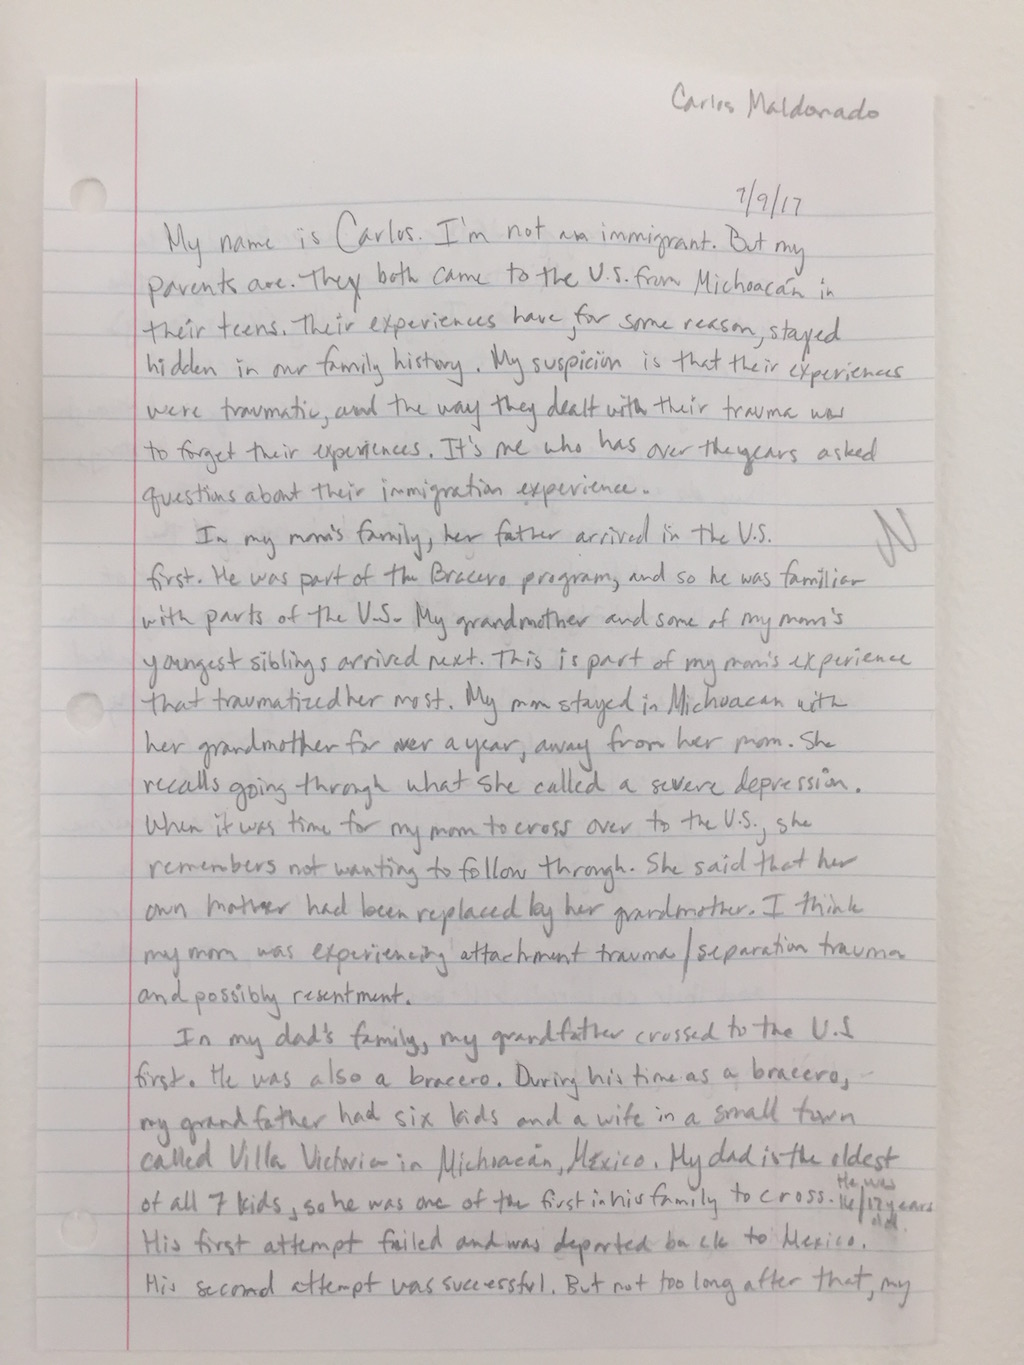 Carlos Maldonado
7/9/17
My name is Carlos. I'm not an immigrant. But my
parents are. They both came to the U.S. from Michoacán in
their teens. Their experiences have, for some reason, stayed
hidden in our family history. My suspicion is that their experiences
were traumatic, and the way they dealt with their trauma was
to forget their experiences. It's me who has over the years asked
questions about their immigration experience.
In my mom's family, her father arrived in the U.S.
first. He was part of the Bracero program, and so he was familiar
with parts of the U.S. My grandmother and some of my mom's
youngest siblings arrived next. This is part of my mom's experience
that traumatized her most. My mom stayed in Michoacan with
her grandmother for over a year, away from her mom. She
recalls going through what she called a severe depression.
When it was time for my mom to cross over to the U.S., she
remembers not wanting to follow through. She said that her
own mother had been replaced by her grandmother. I think
my mom was experiencing attachment trauma/separation trauma
and possibly resentment.
In my dad's family, my grandfather crossed to the U.S
first. He was also a bracero. During his time as a bracero,
my grandfather had six kids and a wife in a small town
called Villa Victoria in Michoacán, México. My dad is the oldest
of all 7 kids, so he was one of the first in his family to cross. He was 17 years old.
His first attempt failed and was deported back to Mexico.
His second attempt was successful. But not too long after that, my